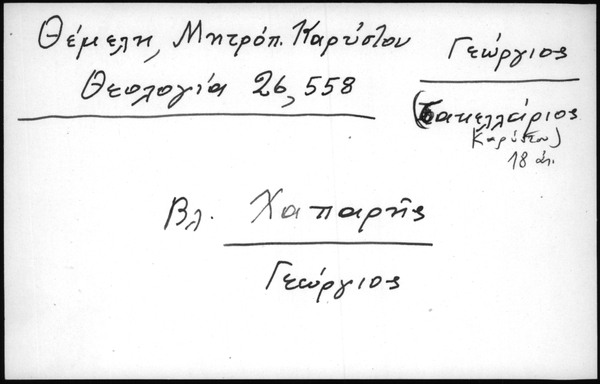 Θέμελη, Μητρόπ. Καρύστου
Θεολογία 26, 558
Γεώργιος
(Σακελλάριος
Καρύστου)
18 αι.
Βλ. Χαπαρῆς
Γεώργιος